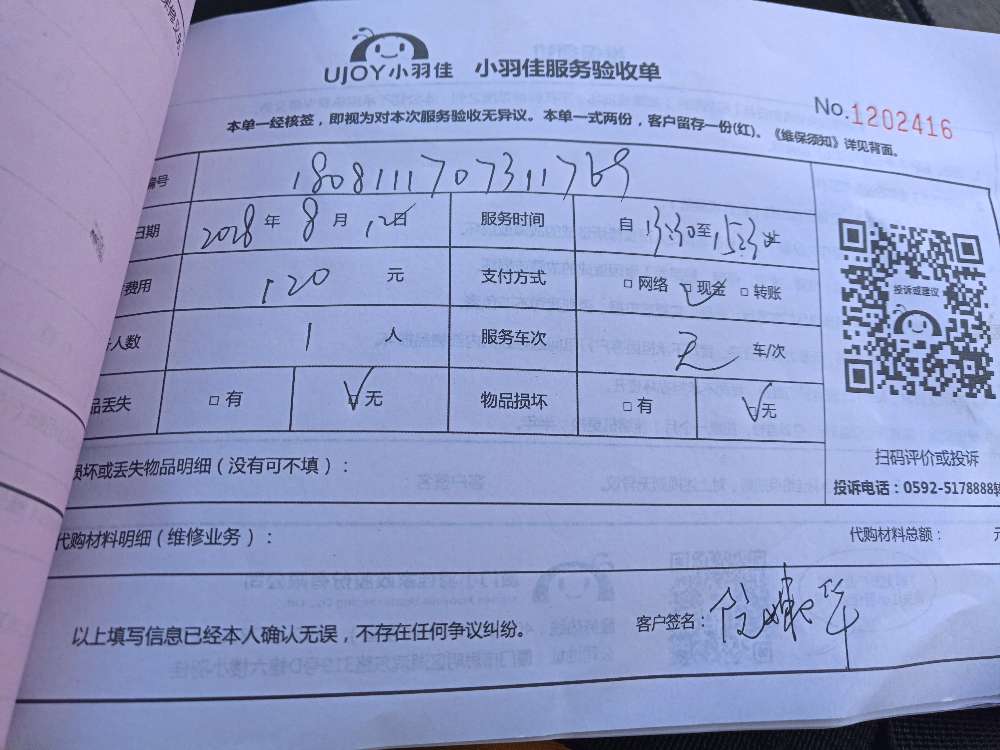 UJOY小羽佳 小羽佳服务验收单
No.1202416
本单一经核签，即视为对本次服务验收无异议。本单一式两份，客户留存一份(红)。《维保须知》详见背面。
编号 1808111707311769
日期 2028年8月12日 服务时间 自13:30至15:30止
费用 120元 支付方式 □网络 □现金 □转账
人数 1人 服务车次 2 车/次
品丢失 □有 □无 物品损坏 □有 □无
投诉或建议
扫码评价或投诉
投诉电话：0592-5178888转
损坏或丢失物品明细（没有可不填）：
代购材料明细（维修业务）： 代购材料总额： 元
以上填写信息已经本人确认无误，不存在任何争议纠纷。 客户签名：